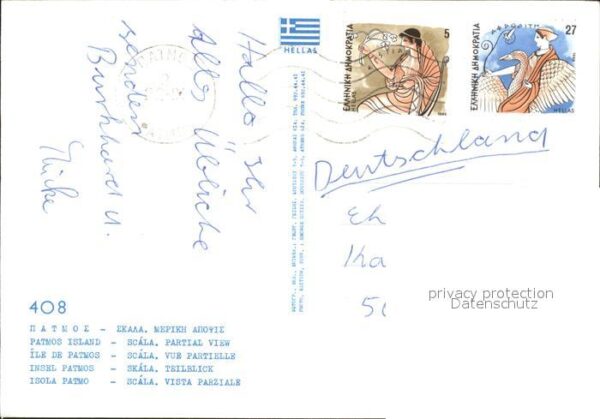 HELLAS
Hallo Ihr
Alles Übliche
senden
Burkhard u.
Heike
ΕΛΛΗΝΙΚΗ ΔΗΜΟΚΡΑΤΙΑ
HELLAS
5
ΕΣΤΙΑ
ΕΛΛΗΝΙΚΗ ΔΗΜΟΚΡΑΤΙΑ
27
ΑΦΡΟΔΙΤΗ
HELLAS
Deutschland
Eh
Ka
50
privacy protection
Datenschutz
408
ΠΑΤΜΟΣ - ΣΚΑΛΑ. ΜΕΡΙΚΗ ΑΠΟΨΙΣ
PATMOS ISLAND - SCÁLA, PARTIAL VIEW
ÎLE DE PATMOS - SCÁLA, VUE PARTIELLE
INSEL PATMOS - SKÁLA, TEILBLICK
ISOLA PATMO - SCÁLA, VISTA PARZIALE